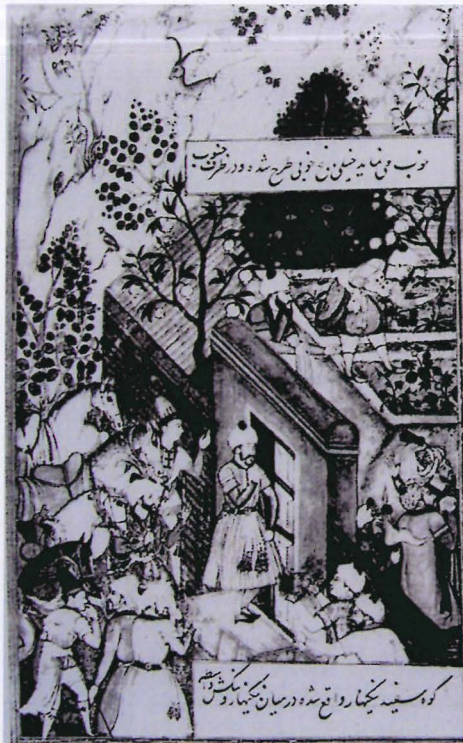 خوب می نماید خیلی باغ خوبی طرح شده و در طرف جنوب
کوه سفید نیکنهار واقع شده در میان نیکنهار و بنگش